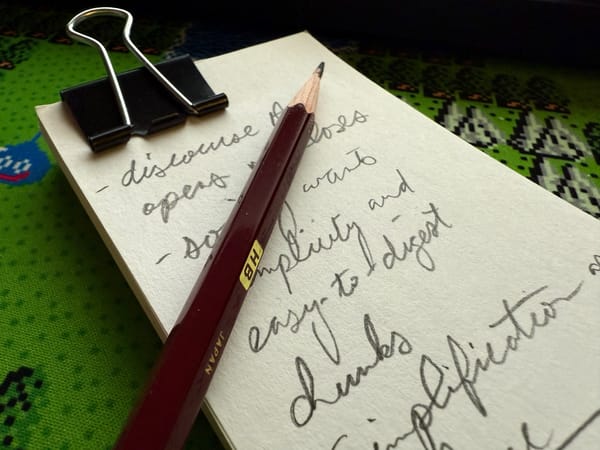 - discourse
opens closes
- so wants
mplicity and
easy-to-digest
chunks
implification
HB
JAPAN